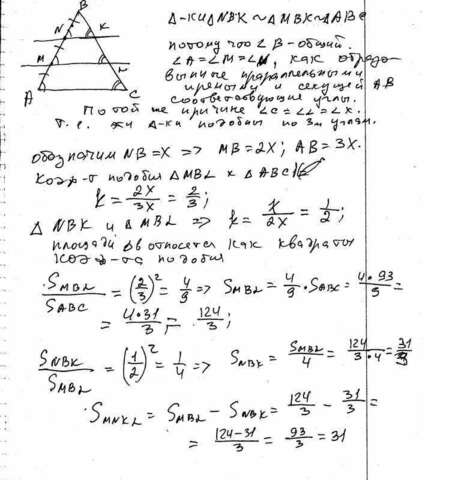 B
N K
M L
A C
Δ-ки Δ NBK ~ Δ MBL ~ Δ ABC
потому что ∠ B - общий.
∠A = ∠M = ∠N, как образо
ванные параллельными
прямыми и секущей AB
соответствующие углы.
По той же причине ∠C = ∠L = ∠K.
т.е. эти Δ-ки подобны по 3м углам.
обозначим NB = X => MB = 2X; AB = 3X.
Коэф-т подобия Δ MBL к Δ ABC
k = 2X/3X = 2/3;
Δ NBK и Δ MBL => k = X/2X = 1/2;
площади Δв относятся как квадраты
коэф-та подобия
S_MBL/S_ABC = (2/3)² = 4/9 => S_MBL = 4/9 · S_ABC = 4·93/9 =
= 4·31/3 = 124/3;
S_NBK/S_MBL = (1/2)² = 1/4 => S_NBK = S_MBL/4 = 124/3·4 = 31/3
S_MNKL = S_MBL - S_NBK = 124/3 - 31/3 =
= 124-31/3 = 93/3 = 31